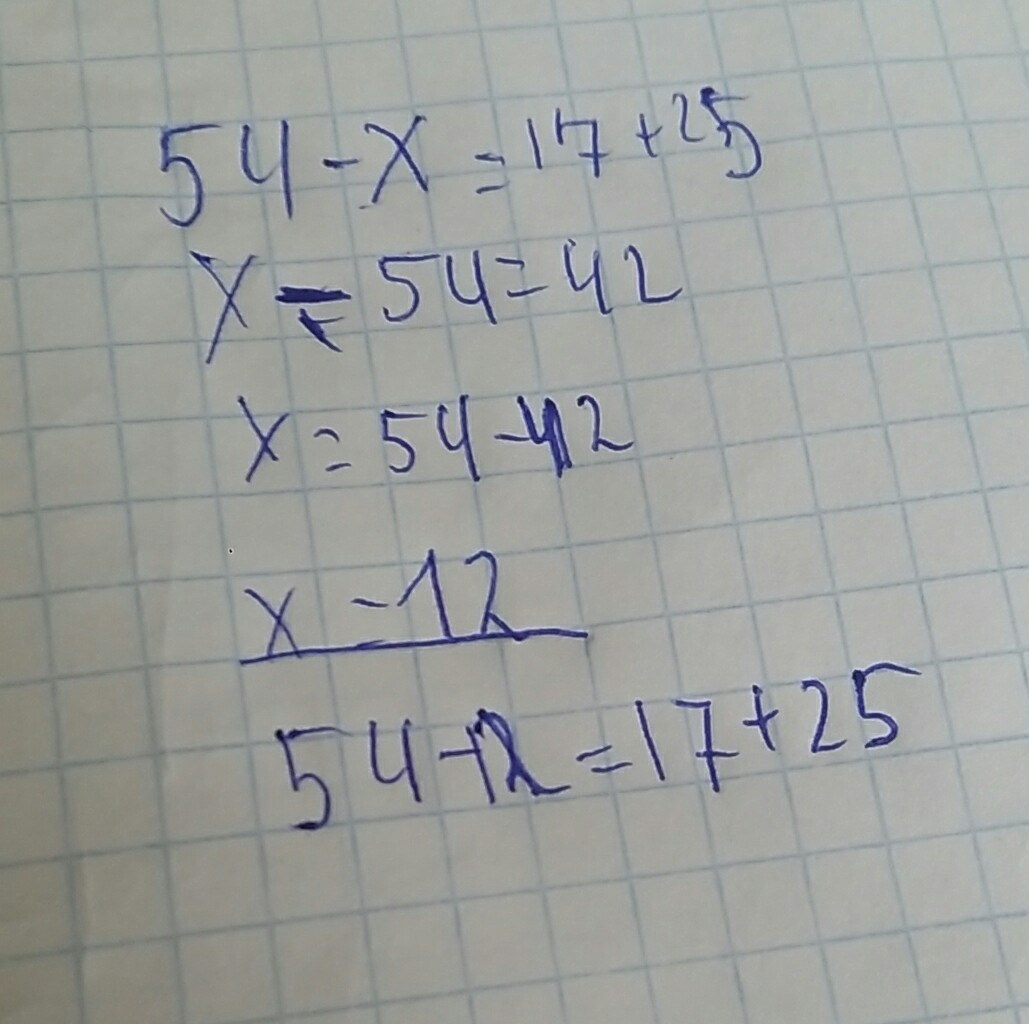 54-x=17+25
x = 54=42
x=54-42
x=12
54-12=17+25